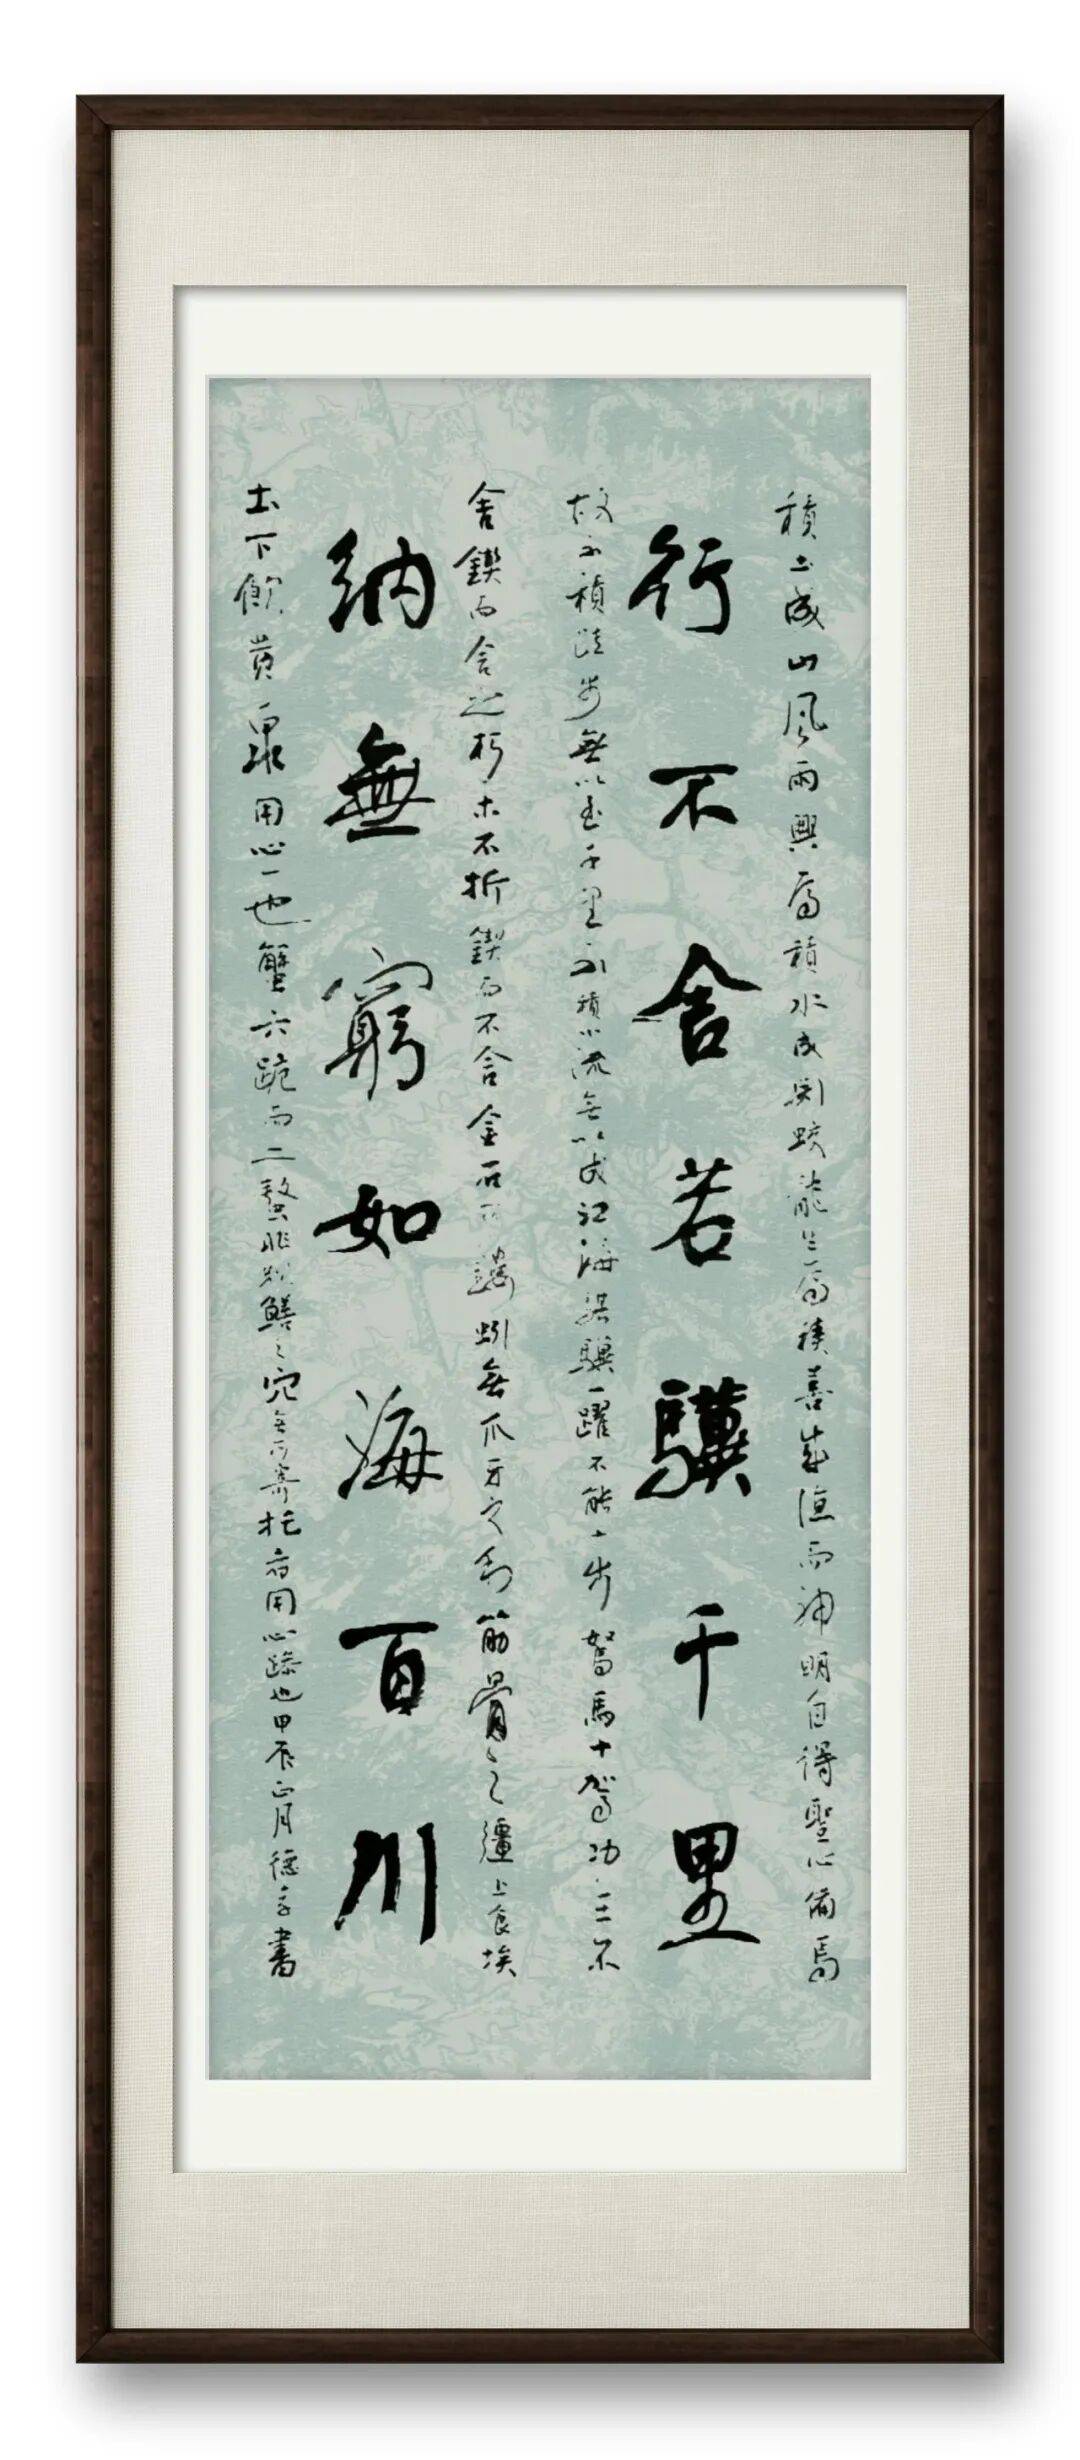 積土成山風雨興焉積水成渊蛟龍生焉積善成德而神明自得聖心備焉
行不舍若驥千里
故不積跬步無以至千里不積小流無以成江海騏驥一躍不能十步駑馬十駕功在不
舍鍥而舍之朽木不折鍥而不舍金石可鏤螾無爪牙之利筋骨之彊上食埃
納無窮如海百川
土下飲黃泉用心一也蟹六跪而二螯非蛇鱔之穴無可寄托者用心躁也甲辰正月德書